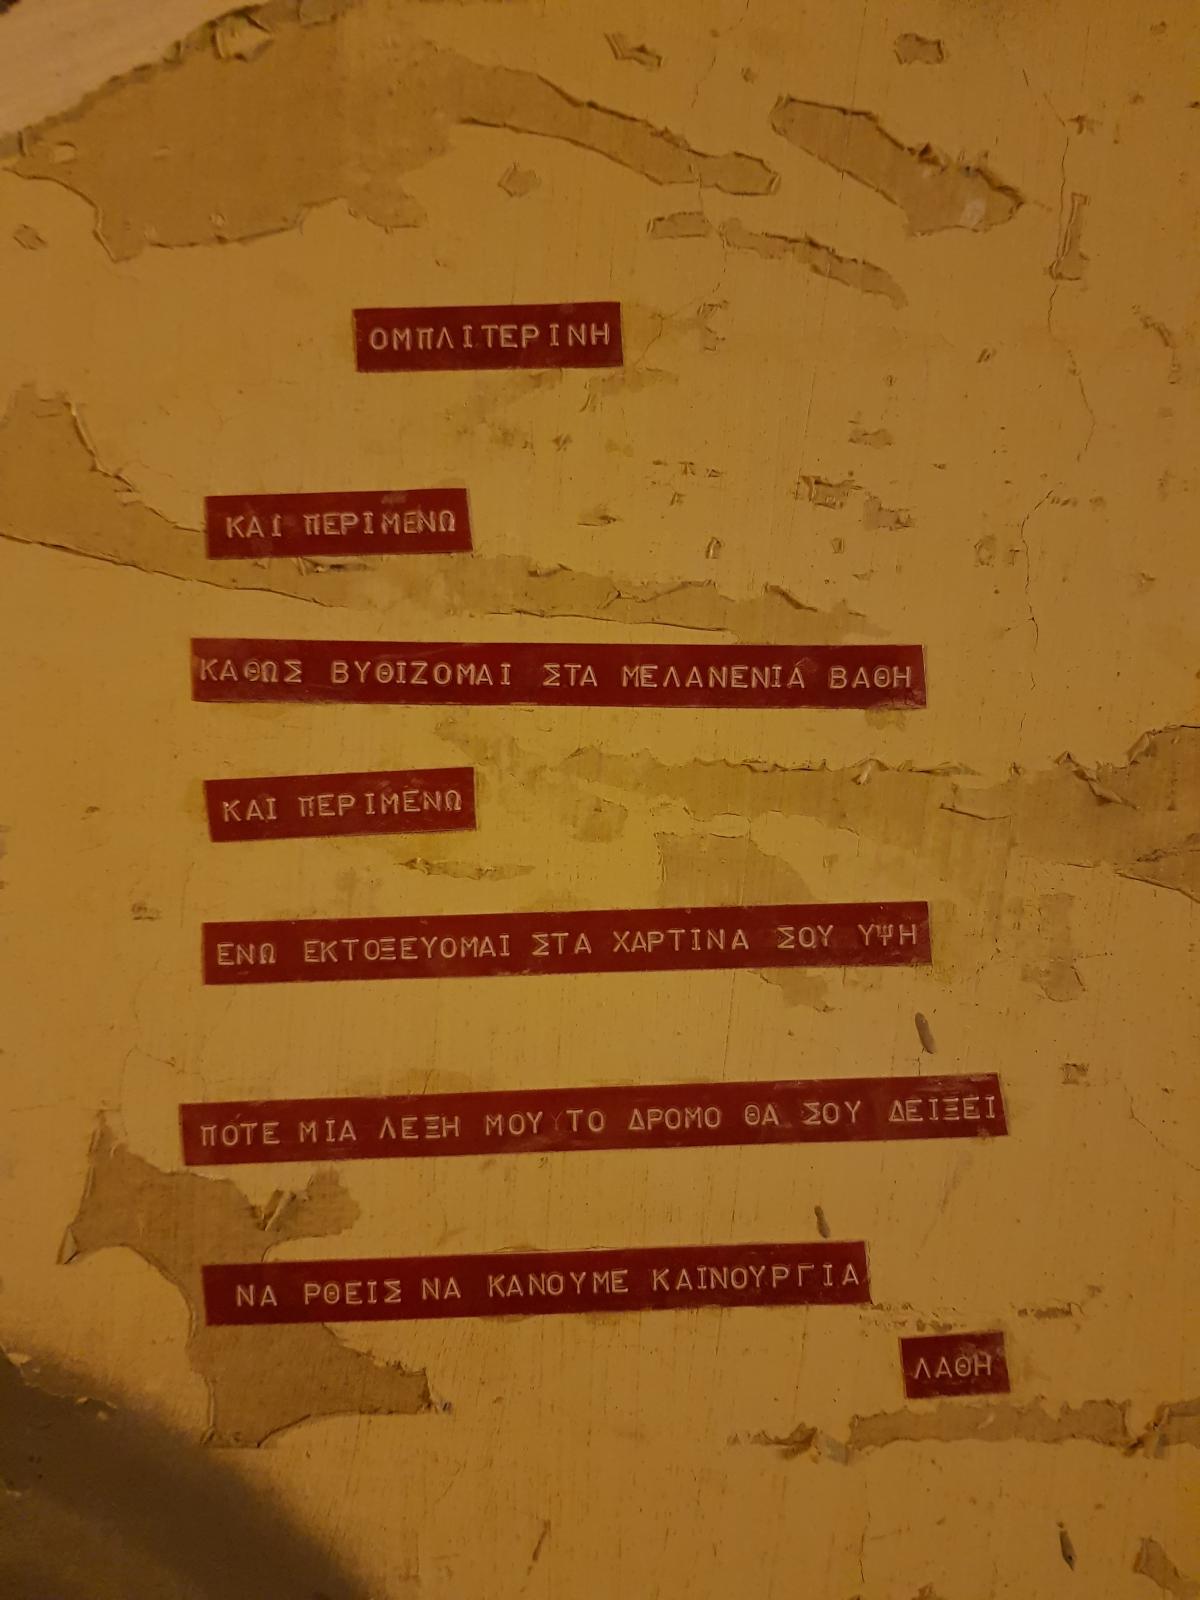 ΟΜΠΛΙΤΕΡΙΝΗ
ΚΑΙ ΠΕΡΙΜΕΝΩ
ΚΑΘΩΣ ΒΥΘΙΖΟΜΑΙ ΣΤΑ ΜΕΛΑΝΕΝΙΑ ΒΑΘΗ
ΚΑΙ ΠΕΡΙΜΕΝΩ
ΕΝΩ ΕΚΤΟΞΕΥΟΜΑΙ ΣΤΑ ΧΑΡΤΙΝΑ ΣΟΥ ΥΨΗ
ΠΟΤΕ ΜΙΑ ΛΕΞΗ ΜΟΥ ΤΟ ΔΡΟΜΟ ΘΑ ΣΟΥ ΔΕΙΞΕΙ
ΝΑ ΡΘΕΙΣ ΝΑ ΚΑΝΟΥΜΕ ΚΑΙΝΟΥΡΓΙΑ
ΛΑΘΗ